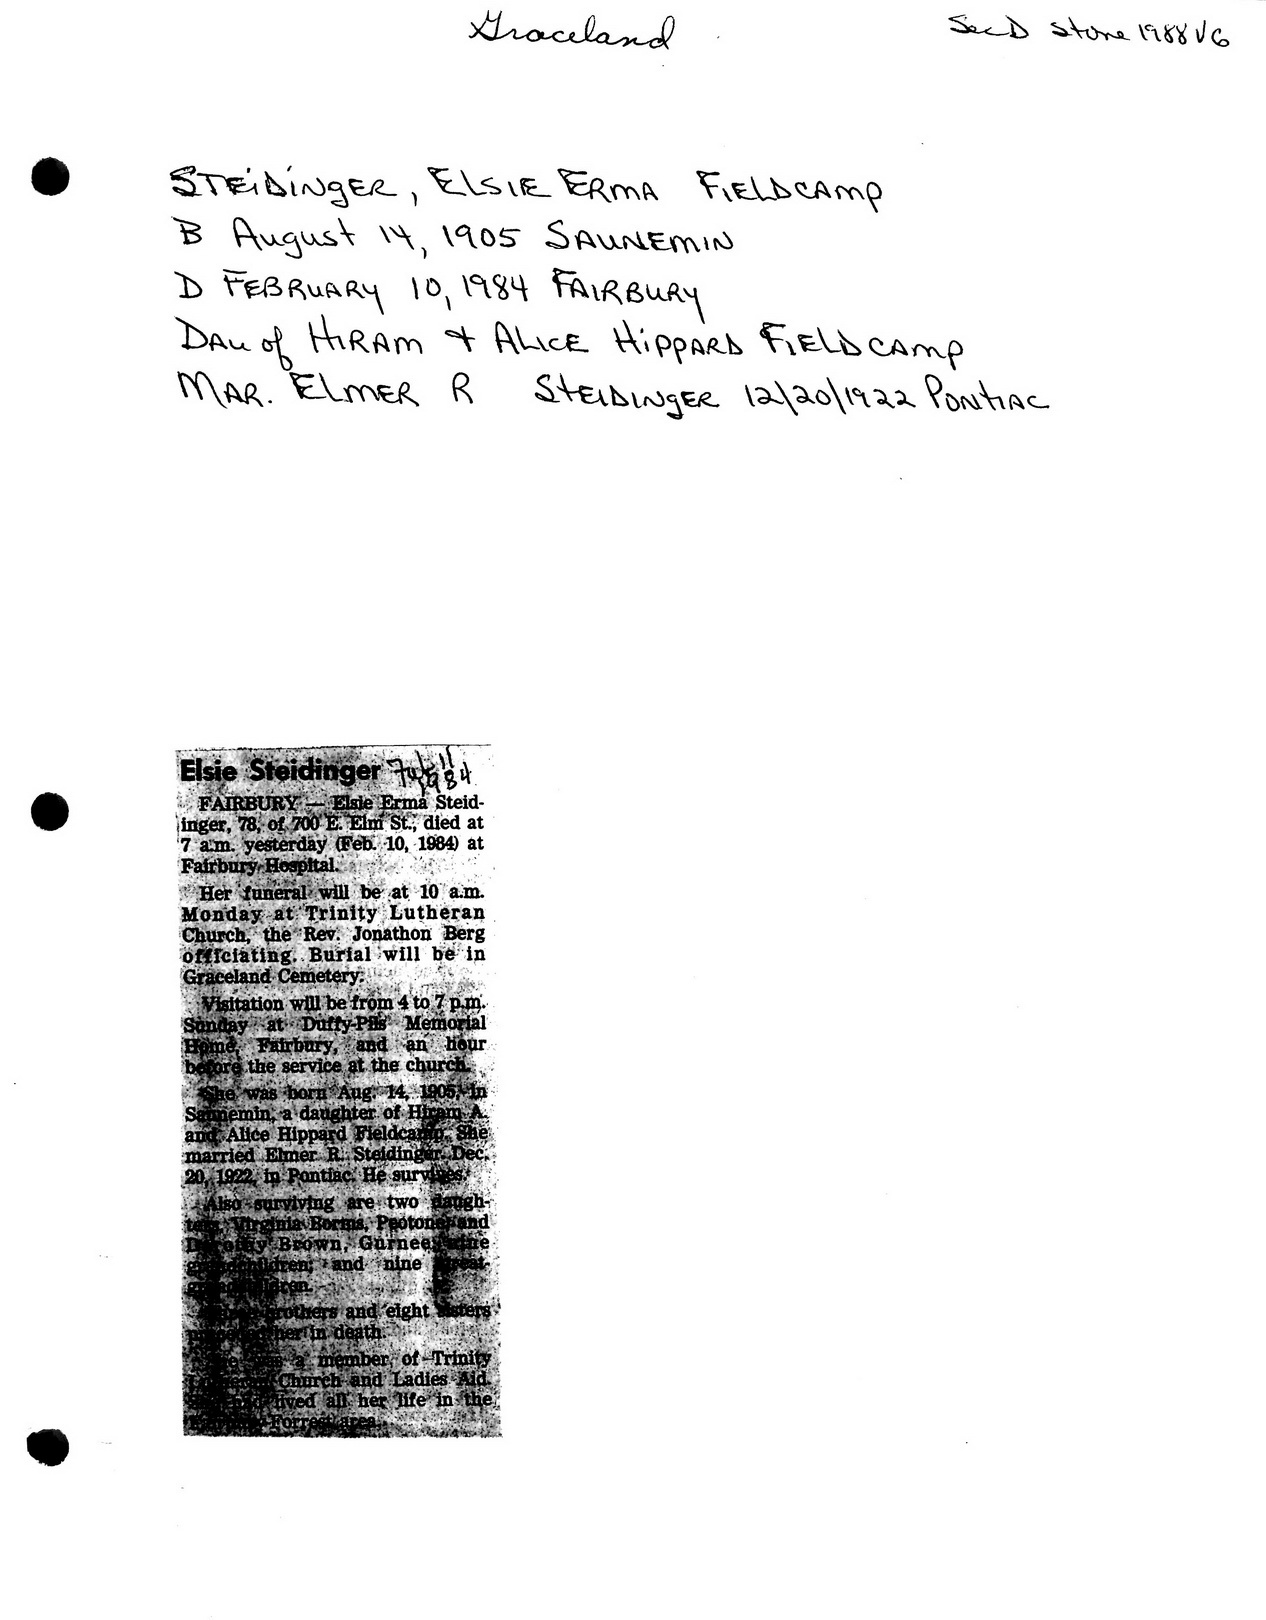 Graceland
Sec D Stone 1988 VG
STEIDINGER, ELSIE ERMA FIELDCAMP
B August 14, 1905 SAUNEMIN
D FEBRUARY 10, 1984 FAIRBURY
DAU of HIRAM & ALICE HIPPARD FIELDCAMP
MAR. ELMER R STEIDINGER 12/20/1922 PONTIAC
Elsie Steidinger 11
1984
FAIRBURY — Elsie Erma Steid-
inger, 78, of 700 E. Elm St., died at
7 a.m. yesterday (Feb. 10, 1984) at
Fairbury Hospital.
Her funeral will be at 10 a.m.
Monday at Trinity Lutheran
Church, the Rev. Jonathon Berg
officiating. Burial will be in
Graceland Cemetery.
Visitation will be from 4 to 7 p.m.
Sunday at Duffy-Pils Memorial
Home, Fairbury, and an hour
before the service at the church.
She was born Aug. 14, 1905, in
Saunemin, a daughter of Hiram A.
and Alice Hippard Fieldcamp. She
married Elmer R. Steidinger Dec.
20, 1922, in Pontiac. He survives.
Also surviving are two daugh-
ters, Virginia Borms, Peotone, and
Dorothy Brown, Gurnee; nine
grandchildren; and nine great-
grandchildren.
brothers and eight sisters
preceded her in death.
She was a member of Trinity
Lutheran Church and Ladies Aid.
She had lived all her life in the
Forrest area.